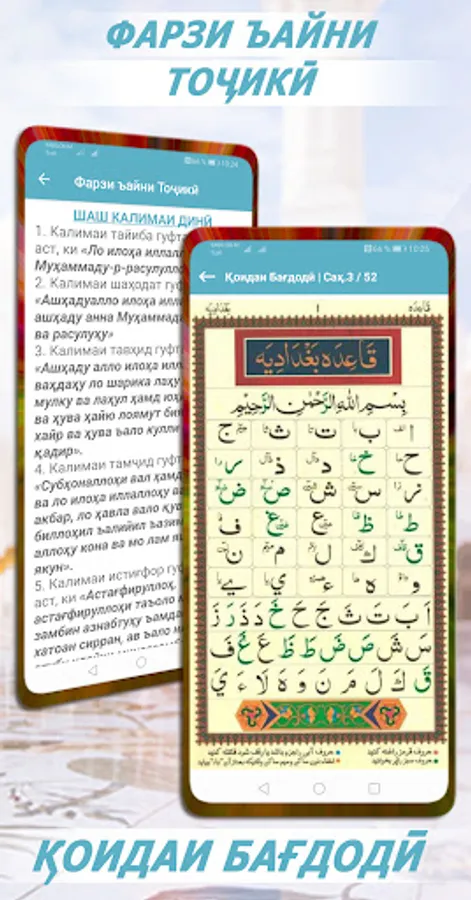 ФАРЗИ ЪАЙНИ
ТОҶИКӢ
10:24
Фарзи ъайни Тоҷикӣ
ШАШ КАЛИМАИ ДИНӢ
1. Калимаи тайиба гуфт
аст, ки «Ло илоҳа иллал
Муҳаммаду-р-расулулло
2. Калимаи шаҳодат гуф
«Ашҳадуалло илоҳа илл
ашҳаду анна Муҳаммад
ва расулуҳу»
3. Калимаи тавҳид гуф
«Ашҳаду алло илоҳа ил
ваҳдаҳу ло шарика лаҳу
мулку ва лаҳул ҳамд юҳ
ва ҳува ҳайю лоямут би
хайр ва ҳува ъало кулли
қадир».
4. Калимаи тамҷид гуф
«Субҳоналлоҳи вал ҳамд
ва ло илоҳа иллаллоҳу в
акбар, ло ҳавла вало қув
биллоҳил ъалийил ъазим
аллоҳу кона ва мо лам я
якун».
5. Калимаи истиғфор гу
аст, ки «Астағфируллоҳ,
астағфируллоҳи таъоло м
замбин азнабтуҳу ъамда
хатоан сирран, ав ъало н
10:25
Қоидаи Бағдодӣ | Саҳ.3 / 52
قاعده ١ بغدادیه
قَاعِدَه بَغْدَادِيَه
بِسْمِ اللهِ الرَّحْمٰنِ الرَّحِيْمِ
ا ب ت ث ج
ح خ د ذ ر
ز س ش ص ض
ط ظ ع غ ف
ق ك ل م ن
و ه ء ي ے
اَ بَ تَ ثَ جَ حَ خَ دَ ذَ رَ زَ
سَ شَ صَ ضَ طَ ظَ عَ غَ فَ
قَ كَ لَ مَ نَ وَ هَ لَا ءَ يَ
ҚОИДАИ БАҒДОДӢ